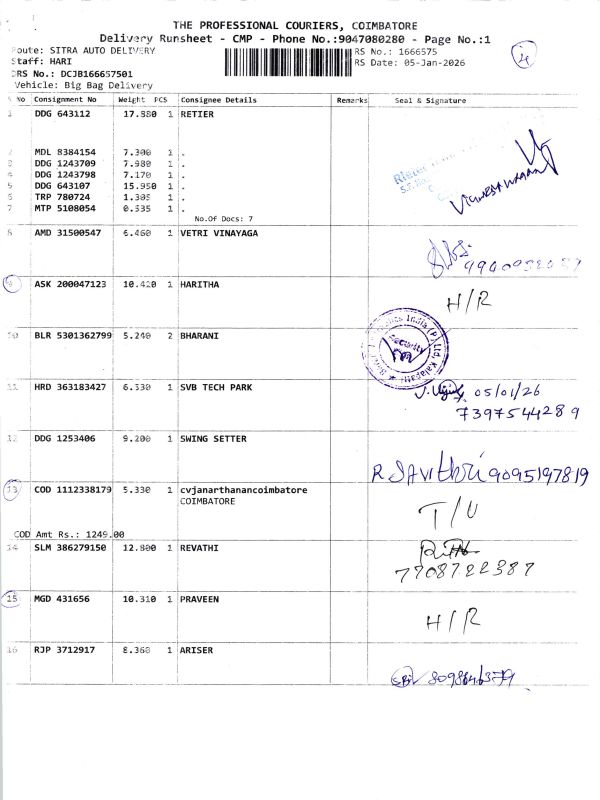 THE PROFESSIONAL COURIERS, COIMBATORE
Delivery Runsheet - CMP - Phone No.:9047080280 - Page No.:1
Route: SITRA AUTO DELIVERY RS No.: 1666575
Staff: HARI RS Date: 05-Jan-2026
DRS No.: DCJB166657501
Vehicle: Big Bag Delivery
4
S No Consignment No Weight PCS Consignee Details Remarks Seal & Signature
1 DDG 643112 17.880 1 RETIER
2 MDL 8384154 7.300 1 .
3 DDG 1243709 7.980 1 .
4 DDG 1243798 7.170 1 .
5 DDG 643107 15.950 1 .
6 TRP 780724 1.305 1 .
7 MTP 5108054 0.535 1 .
No.Of Docs: 7
8 AMD 31500547 6.460 1 VETRI VINAYAGA
9 ASK 200047123 10.420 1 HARITHA H/R
10 BLR 5301362799 5.240 2 BHARANI
Security
11 HRD 363183427 6.530 1 SVB TECH PARK 05/01/26
7397544289
12 DDG 1253406 9.200 1 SWING SETTER
9095197819
13 COD 1112338179 5.330 1 cvjanarthanancoimbatore
COIMBATORE
T/U
COD Amt Rs.: 1249.00
14 SLM 386279150 12.800 1 REVATHI
7708722387
15 MGD 431656 10.310 1 PRAVEEN H/R
16 RJP 3712917 8.360 1 ARISER